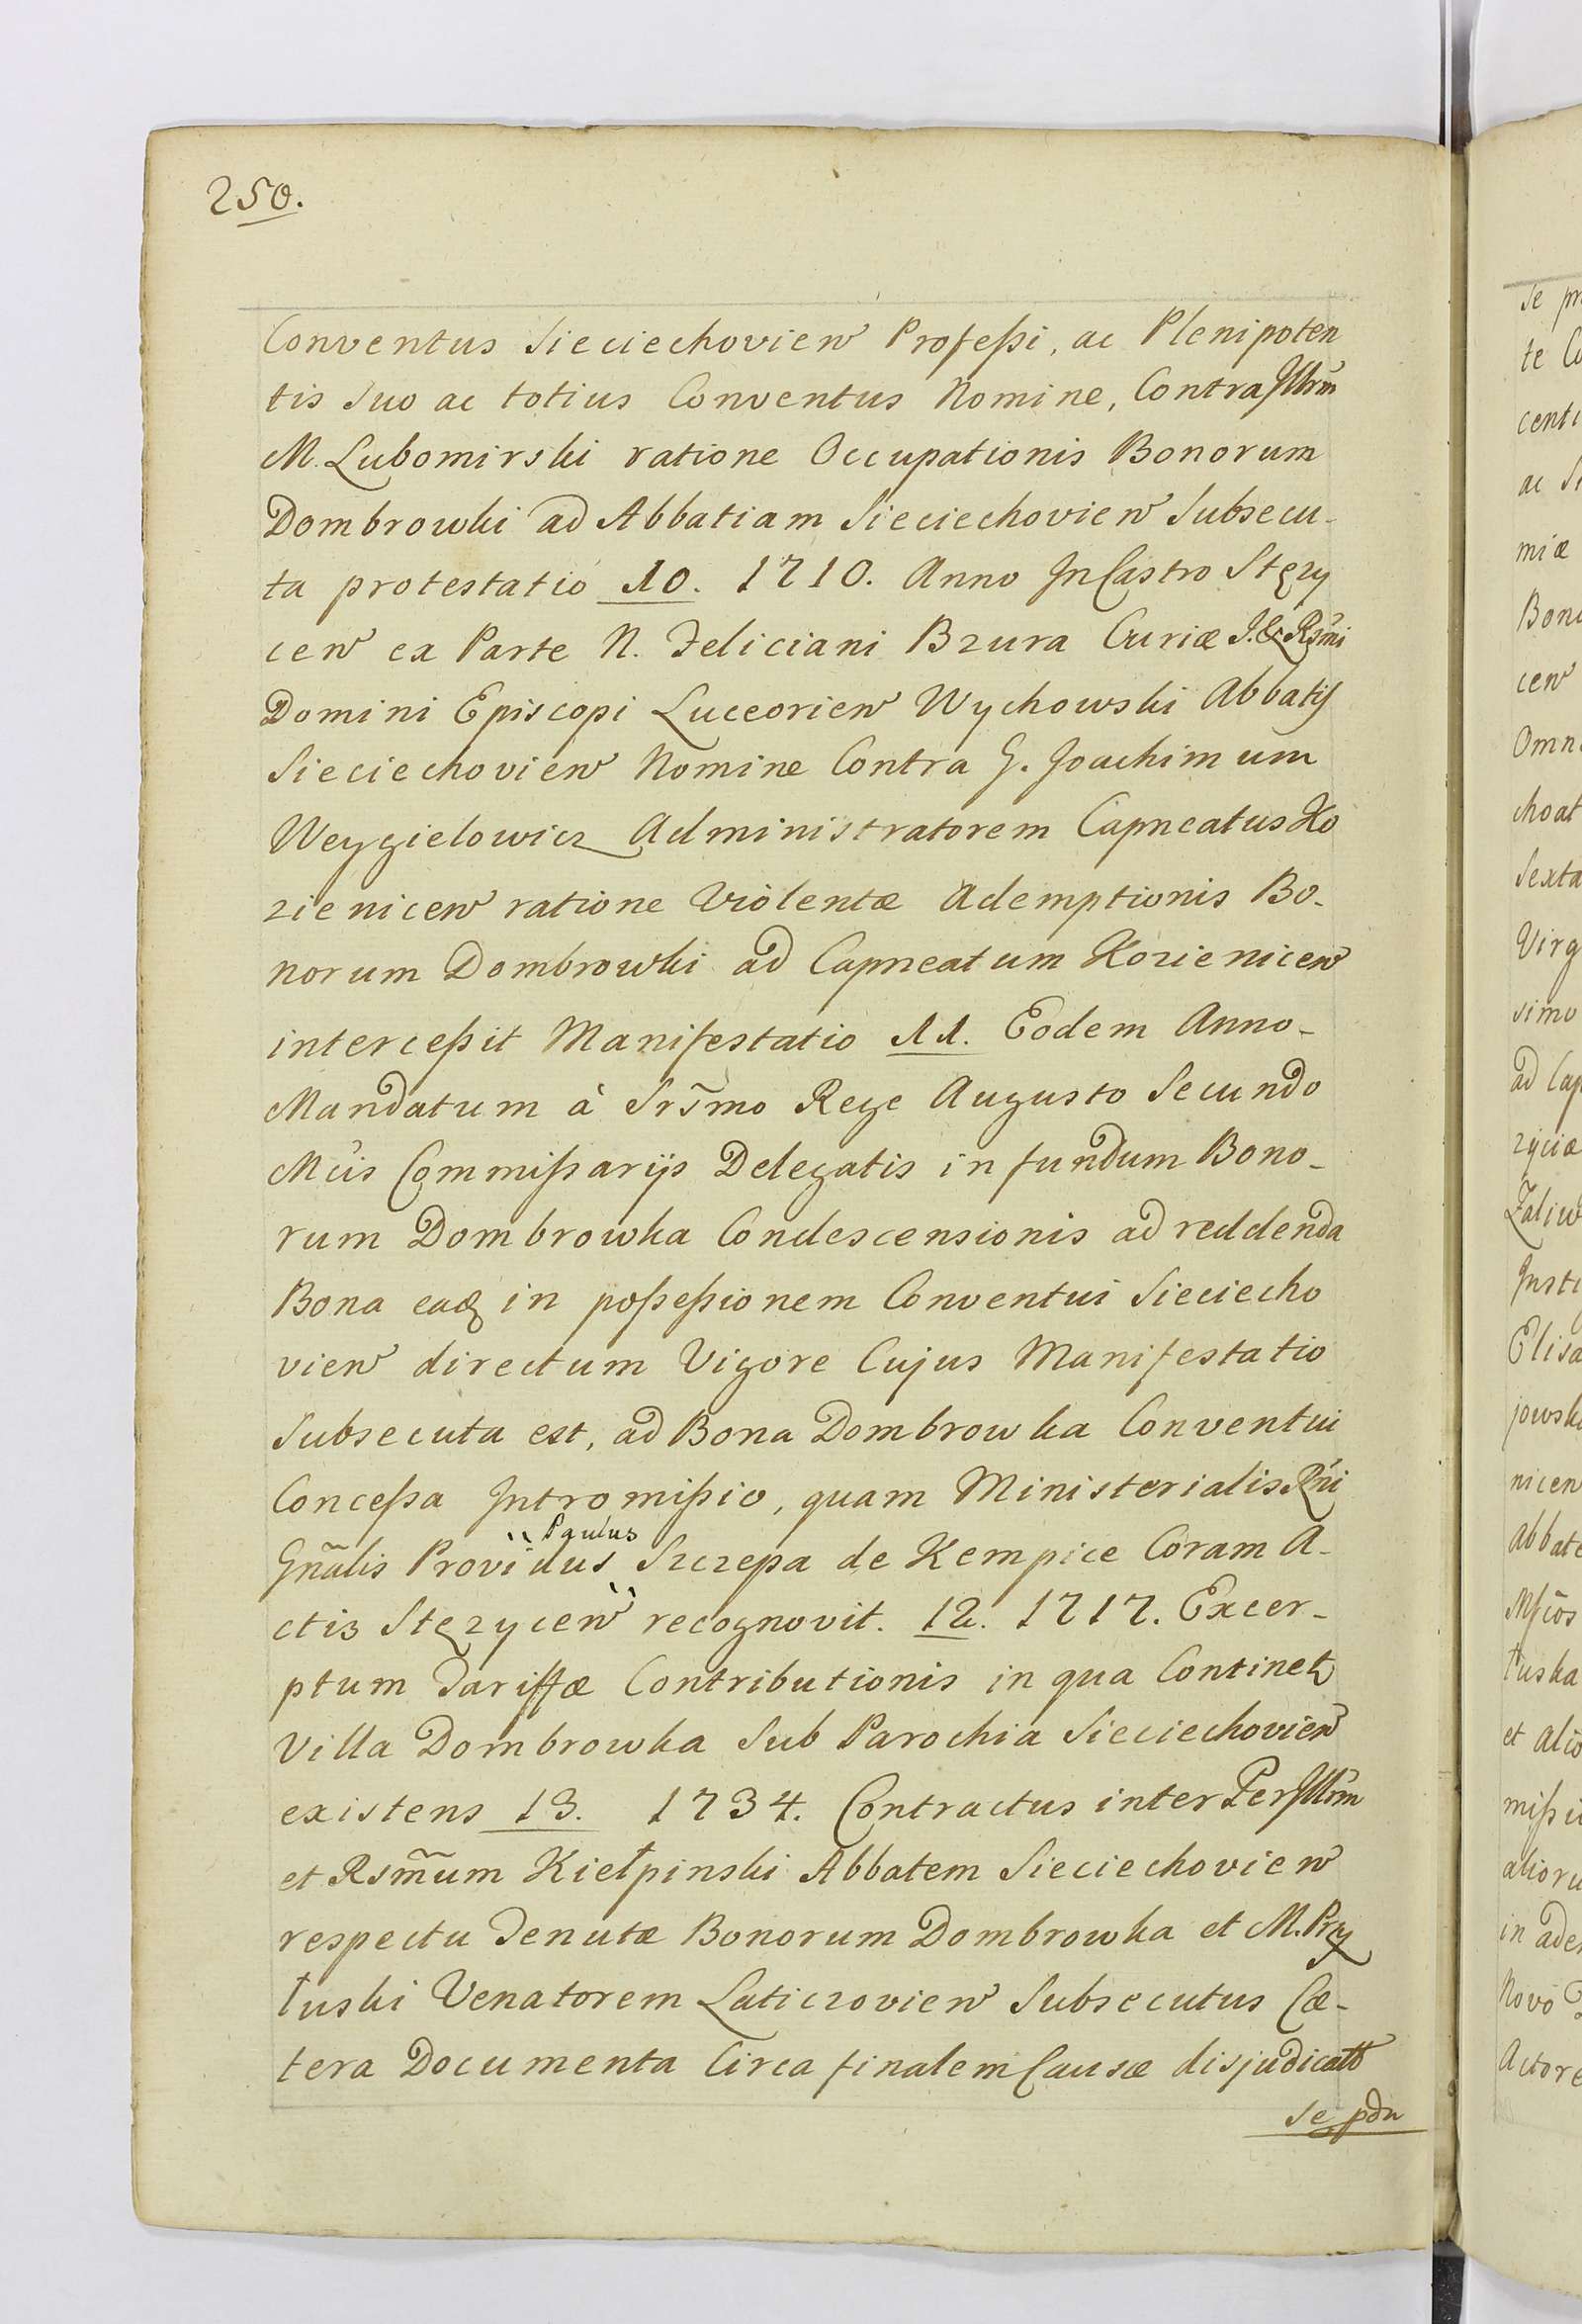 250.
Conventus Sieciechovien Profeßi, ac Plenipoten
tis Suo ac totius Conventus Nomine, Contra Jllrm
M. Lubomirski ratione Occupationis Bonorum
Dombrowki ad Abbatiam Sieciechovien Subsecu-
ta protestatio 10. 1710. Anno Jn Castro Stęzy
cen ex Parte N. Feliciani Bzura Curiæ J. & Rsmi
Domini Episcopi Luceorien Wychowski Abbatis
Sieciechovien Nomine Contra G. Joachimum
Weygielowicz Administratorem Capneatus Ko
zienicen ratione Violentæ Ademptionis Bo-
norum Dombrowki ad Capneatum Kozienicen
interceßit Manifestatio 11. Eodem Anno-
Mandatum à Srs̃mo Rege Augusto Secundo
Mcis Commißarijs Delegatis in fundum Bono-
rum Dombrowka Condescensionis ad reddenda
Bona eaq in poßeßionem Conventui Sieciecho
vien directum Vigore Cujus Manifestatio
Subsecuta est, ad Bona Dombrowka Conventui
Conceßa Jntromißio, quam Ministerialis Rni
Gñalis Providus Paulus Szczepa de Kempice Coram A-
ctis Stęzycen recognovit. 12. 1717. Excer-
ptum Tariffæ Contributionis in qua Continet
Villa Dombrowka Sub Parochia Sieciechovien
existens 13. 1734. Contractus inter Per Jllrm
et Rsm̃um Kiełpinski Abbatem Sieciechovien
respectu Tenutæ Bonorum Dombrowka et M. Pry
łuski Venatorem Laticzovien Subsecutus Cæ-
tera Documenta Circa finalem Causæ disjudicatt
se pdu
Se pr
te Co
centi
ac Si
miæ
Bono
cen
Omni
choat
Sexta
Virg
simo
ad Cap
zyciæ
Zaliw
Jnsti
Elisa
jowsk
nicen
Abbate
Mfcos
łuska
et alio
mißi
alioru
in ade
Novo
Actore